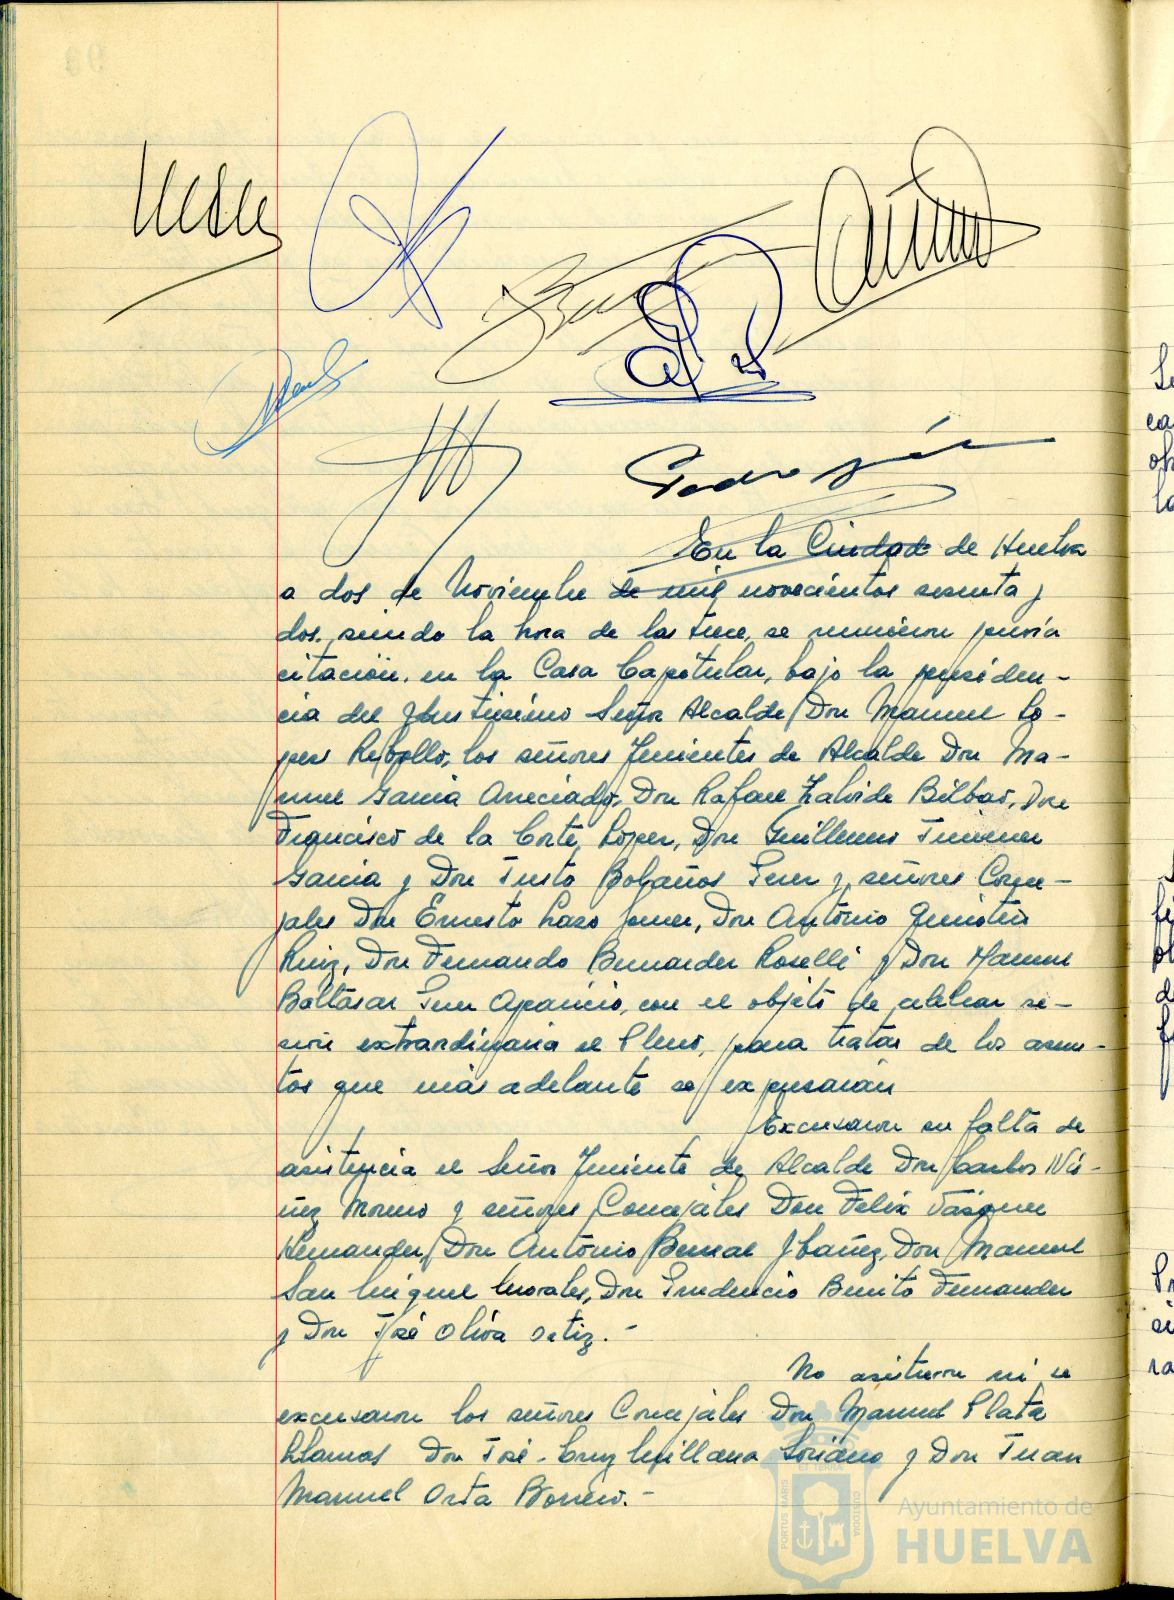 En la Ciudad de Huelva
a dos de Noviembre de mil novecientos sesenta y
dos, siendo la hora de las trece, se reunieron previa
citación, en la Casa Capitular, bajo la presiden-
cia del Ilustrísimo Señor Alcalde Don Manuel Ló-
pez Rebollo, los señores Tenientes de Alcalde Don Ma-
nuel García Aneciado, Don Rafael Zalvide Bilbao, Don
Francisco de la Corte López, Don Guillermo Jimenez
García y Don Justo Bolaños Pérez y señores Conce-
jales Don Ernesto Lazo Don Antonio
Ruiz, Don Fernando Bernardez Roselli y Don Manuel
Baltasar Aparicio, con el objeto de celebrar se-
sión extraordinaria el Pleno, para tratar de los asun-
tos que más adelante se expresarán
Excusaron su falta de
asistencia el Señor Teniente de Alcalde Don Carlos Nú-
ñez Moreno y señores Concejales Don Felix Vázquez
Hernandez, Don Antonio Bernal Ibañez, Don Manuel
San Miguel Morales, Don Prudencio Benito Fernandez
y Don José Oliva Ortiz.-
No asistieron ni se
excusaron los señores Concejales Don Manuel Plata
Llamas Don José-Cruz Quillana Soriano y Don Juan
Manuel Orta Borrero.-
PORTUS MARIS
ET TERRÆ
CUSTODIA
Ayuntamiento de
HUELVA